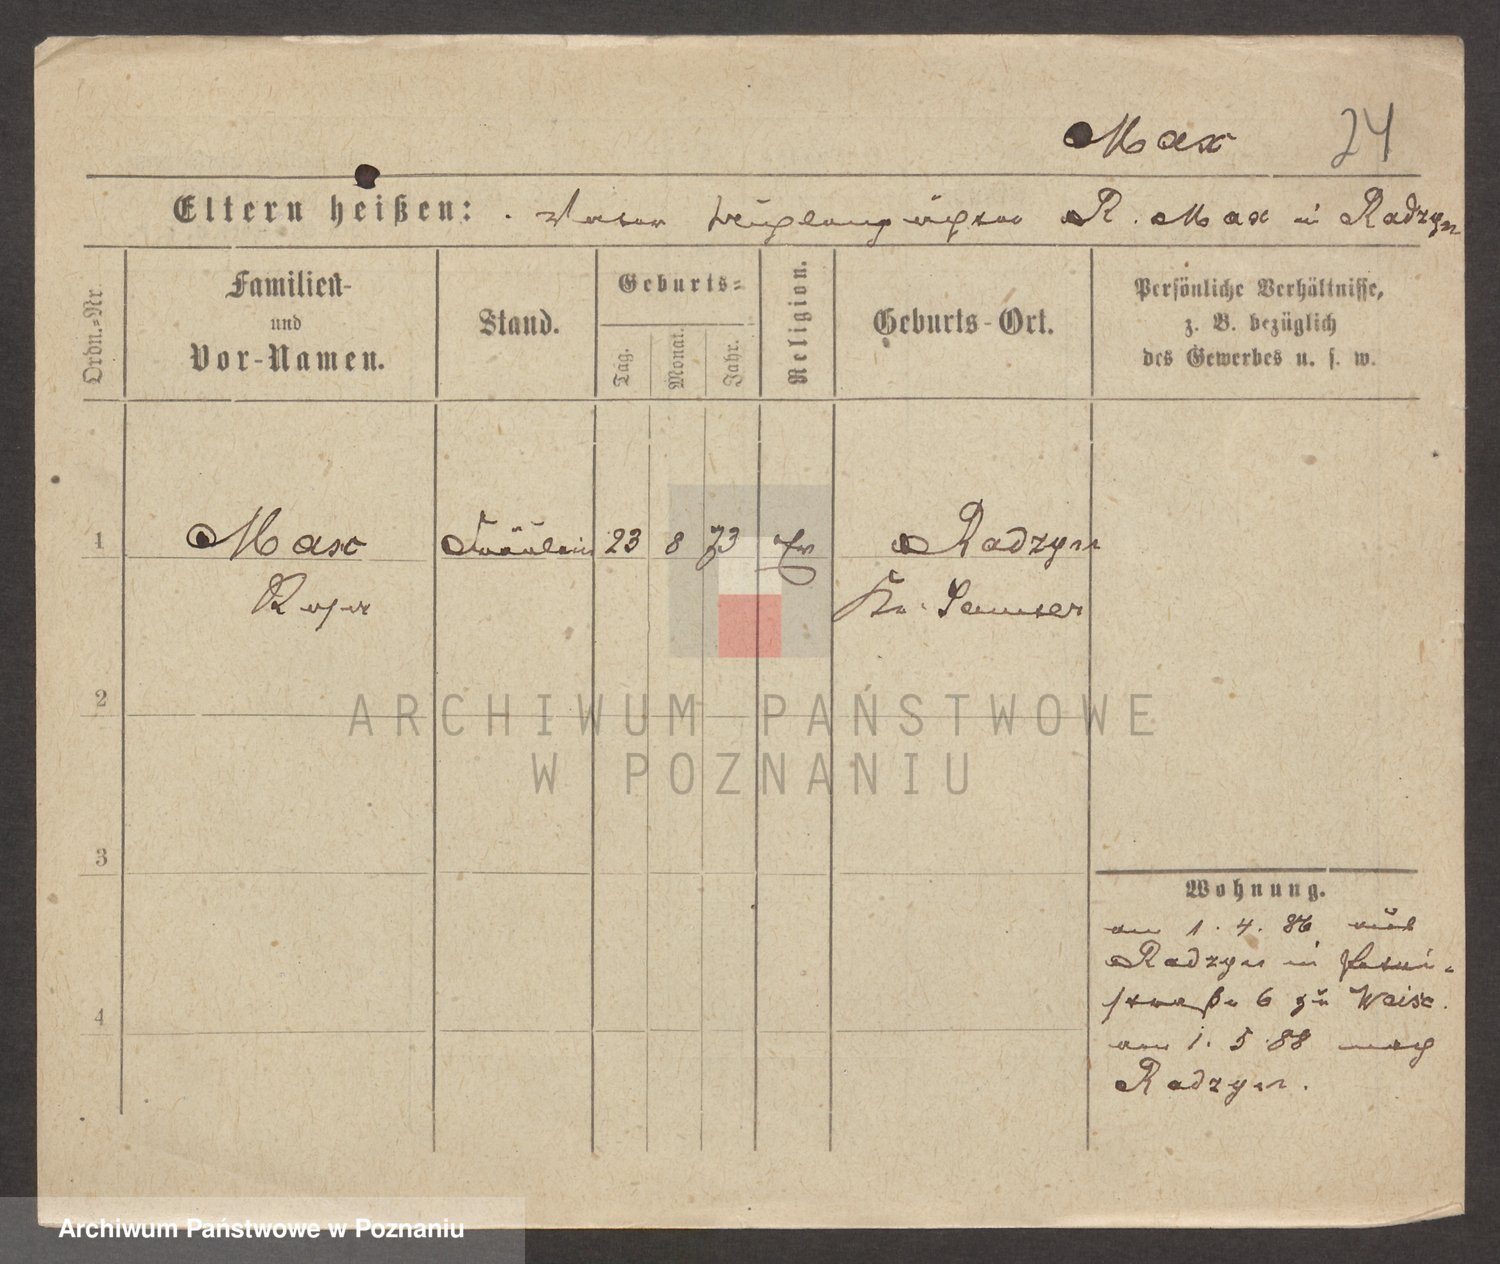 Max 24
Eltern heißen: Vater R. Max in Radzyn
Ordn.-Nr.
Familien-
und
Vor-Namen.
Stand.
Geburts-
Tag.
Monat.
Jahr.
Religion.
Geburts-Ort.
Persönliche Verhältnisse,
z. B. bezüglich
des Gewerbes u. s. w.
1 Max Fräulein 23 8 73 Ev Radzyn
Rosa Kr. Samter
2
ARCHIWUM PAŃSTWOWE
W POZNANIU
3
Wohnung.
am 1. 4. 86 aus
Radzyn in
straße 6 zu Weise.
4
am 1. 5 88 nach
Radzyn.
Archiwum Państwowe w Poznaniu